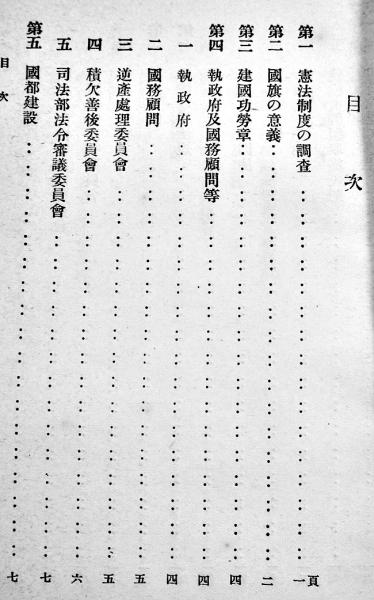 目次
第一 憲法制度の調査……一頁
第二 國旗の意義……二
第三 建國功勞章……四
第四 執政府及國務顧問等……四
一 執政府……四
二 國務顧問……五
三 逆產處理委員會……五
四 積欠善後委員會……六
五 司法部法令審議委員會……七
第五 國都建設……七
目次